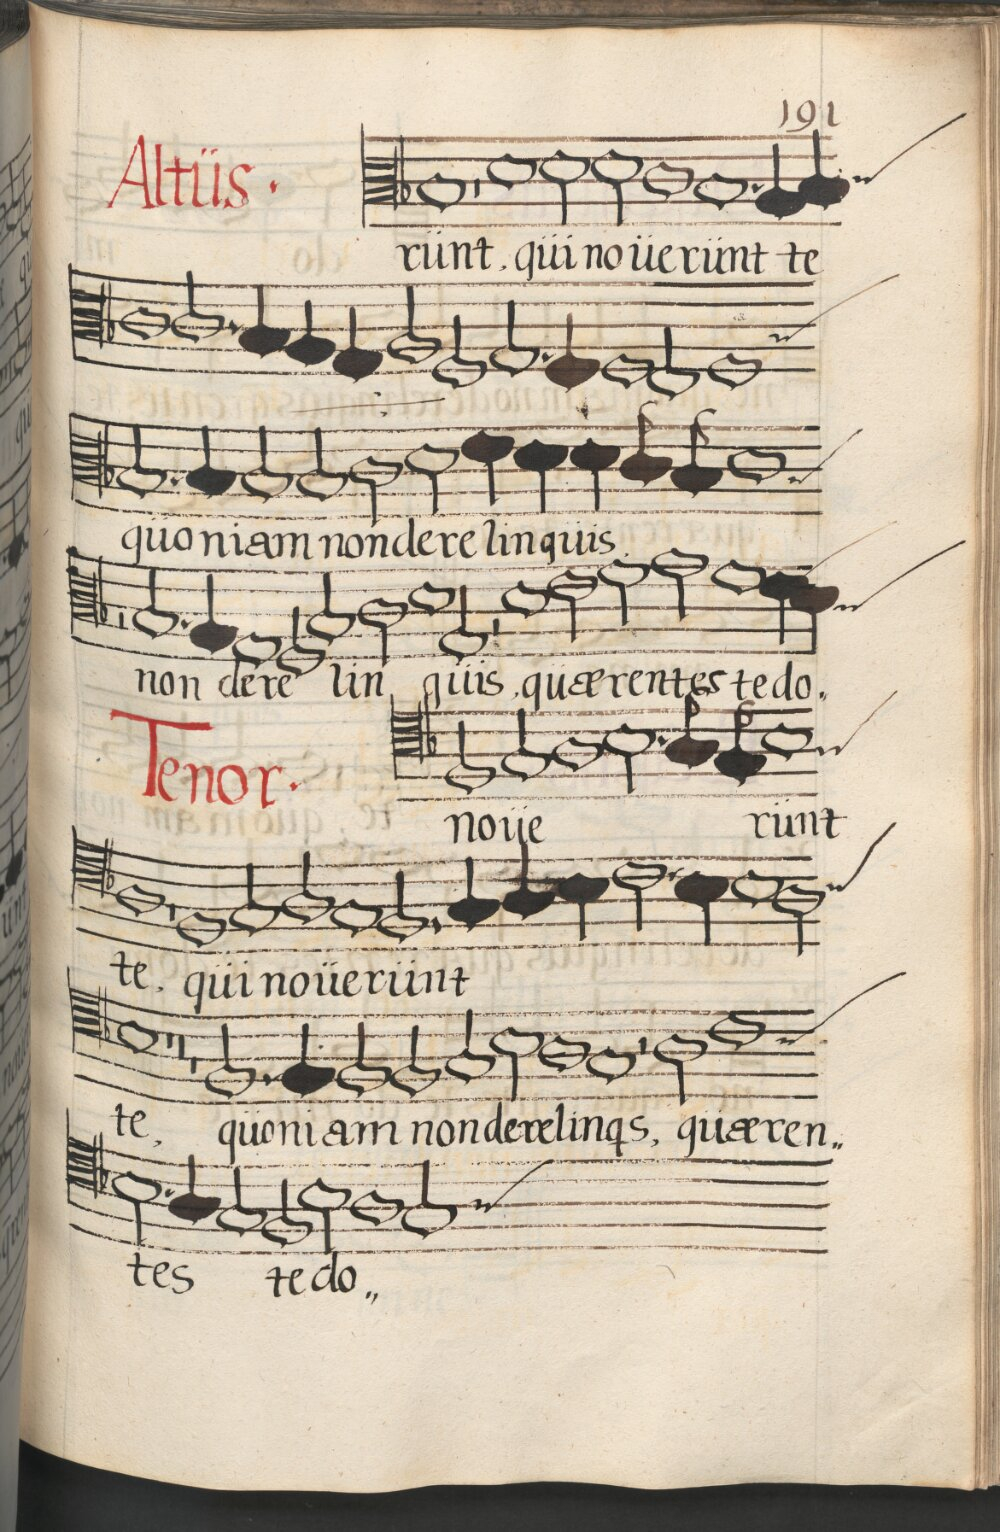 191
Altüs.
rünt, qüi noüerünt te
qüoniam non derelinquis,
non dere lin qüis, qüærentes te do,
Tenor.
noüe rünt
te, qüi noüerünt
te, qüoniam non derelinqs, quæren,,
tes te do,,